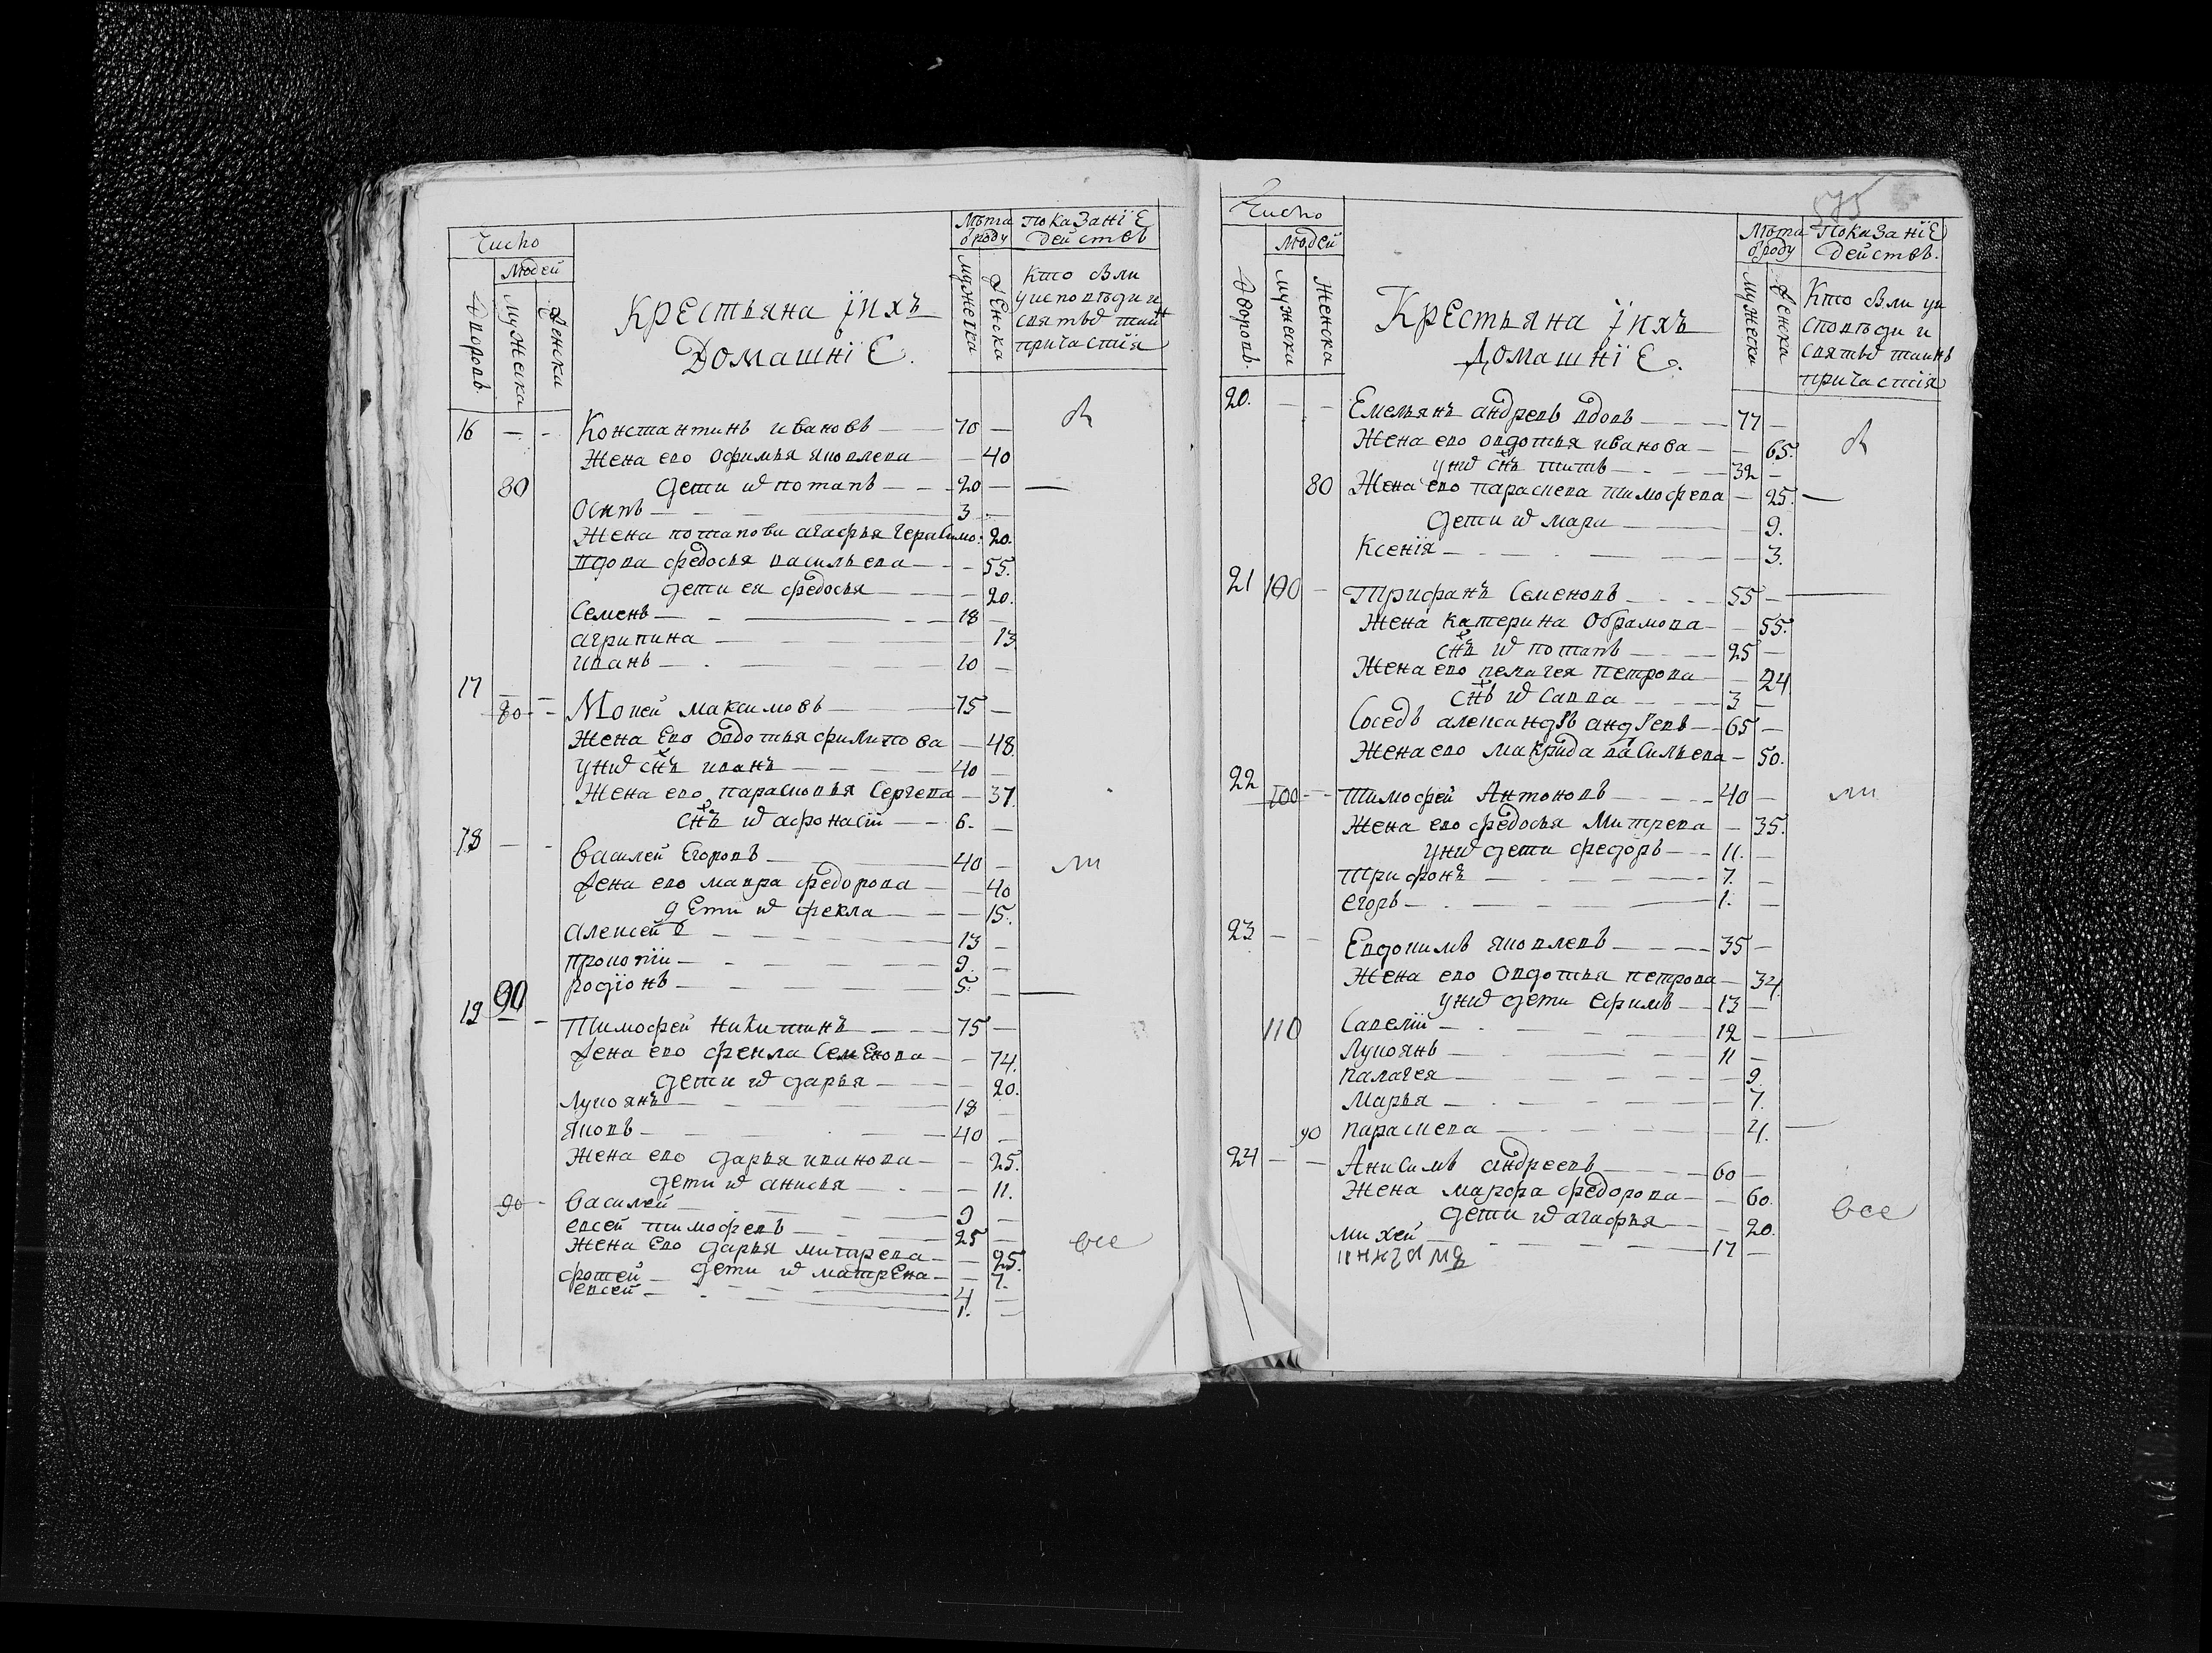 Число
Людей
Дворовъ
Мужеска
Женска
Крестьяна їихъ
Домашнїе.
Лѣта
ѿроду
Мужеска
Женска
показанїе
действъ
Кто бѣли
уисповѣди и
святыѯ таин
причастїя
16 — - Константинъ ивановъ — 70 —
Жена ево офимья яковлева — — 40
80 дети иѯ потапъ — 20 —
Осипъ — 3 —
Жена потапова агафья герасимо: 20.
вдова федосья васильева — - 55.
дети ея федосья — — 20.
Семенъ — 18 —
агрипина — 13
иванъ — 10 —
17
80 - - Мокей максимовъ — 75 —
Жена Ево овдотья филипова — 48
униѯ снъ иванъ — 40 —
Жена ево парасковья Сергева — 37
снъ иѯ афонасїй — 6. —
18 — - василей Егоровъ — 40 —
Жена ево мавра федорова — — 40
дети иѯ фекла — — 15.
алексей — 13 —
прокопїй — 9. —
90 родїонъ — 5. —
19 — - Тимофей никитинъ — 75 —
Жена ево фекла Семенова — — 74.
дети иѯ дарья — — 20.
Лукоянъ — 18 —
яковъ — 40 —
Жена ево дарья иванова — — 25.
дети иѯ анисья — — 11.
90 - василей — 9 —
евсей тимофевъ — 25 —
Жена ево дарья митрева — — 25.
дети иѯ матрена — — 7.
фотей — 4 —
евсей — 1. —
все
575
Число
Людей
Дворовъ
Мужеска
Женска
Крестьяна їихъ
Домашнїе.
Лѣта
ѿроду
Мужеска
Женска
Показанїе
действъ.
Кто бѣли уи
споведи и
святыѯ таинъ
причастїя
20. — - Емельянъ андревъ вдовъ — 77 —
Жена ево овдотья иванова — — 65.
униѯ снъ титъ — 32 —
80 Жена ево параскева тимофева — 25.
дети иѯ мари — — 9.
Ксенїя — — 3.
21 100 - Трифанъ Семеновъ — 55 —
Жена катерина Обрамова — — 55.
снъ иѯ потапъ — 25 —
Жена ево пелагея петрова — — 24
снъ иѯ Савва — 3 —
Соседъ александръ андревъ — 65 —
Жена ево макрида василъева — 50.
22 100 - - Тимофей Антоновъ — 40 —
Жена ево федосья Митрева — 35.
униѯ дети федоръ — 11. —
Трифонъ — 7. —
егоръ — 1. —
23 — - Евдокимъ яковлевъ — 35 —
Жена ево Овдотья петрова — 34.
униѯ дети ефимъ — 13 —
110 Савелїй — 12 —
Лукоянъ — 11 —
палагея — — 9.
Марья — — 7.
90 параскева — — 4.
24 — — Анисимъ андреевъ — 60 —
Жена марфа федорова — — 60.
дети иѯ агафья — — 20.
михей — 17 —
все